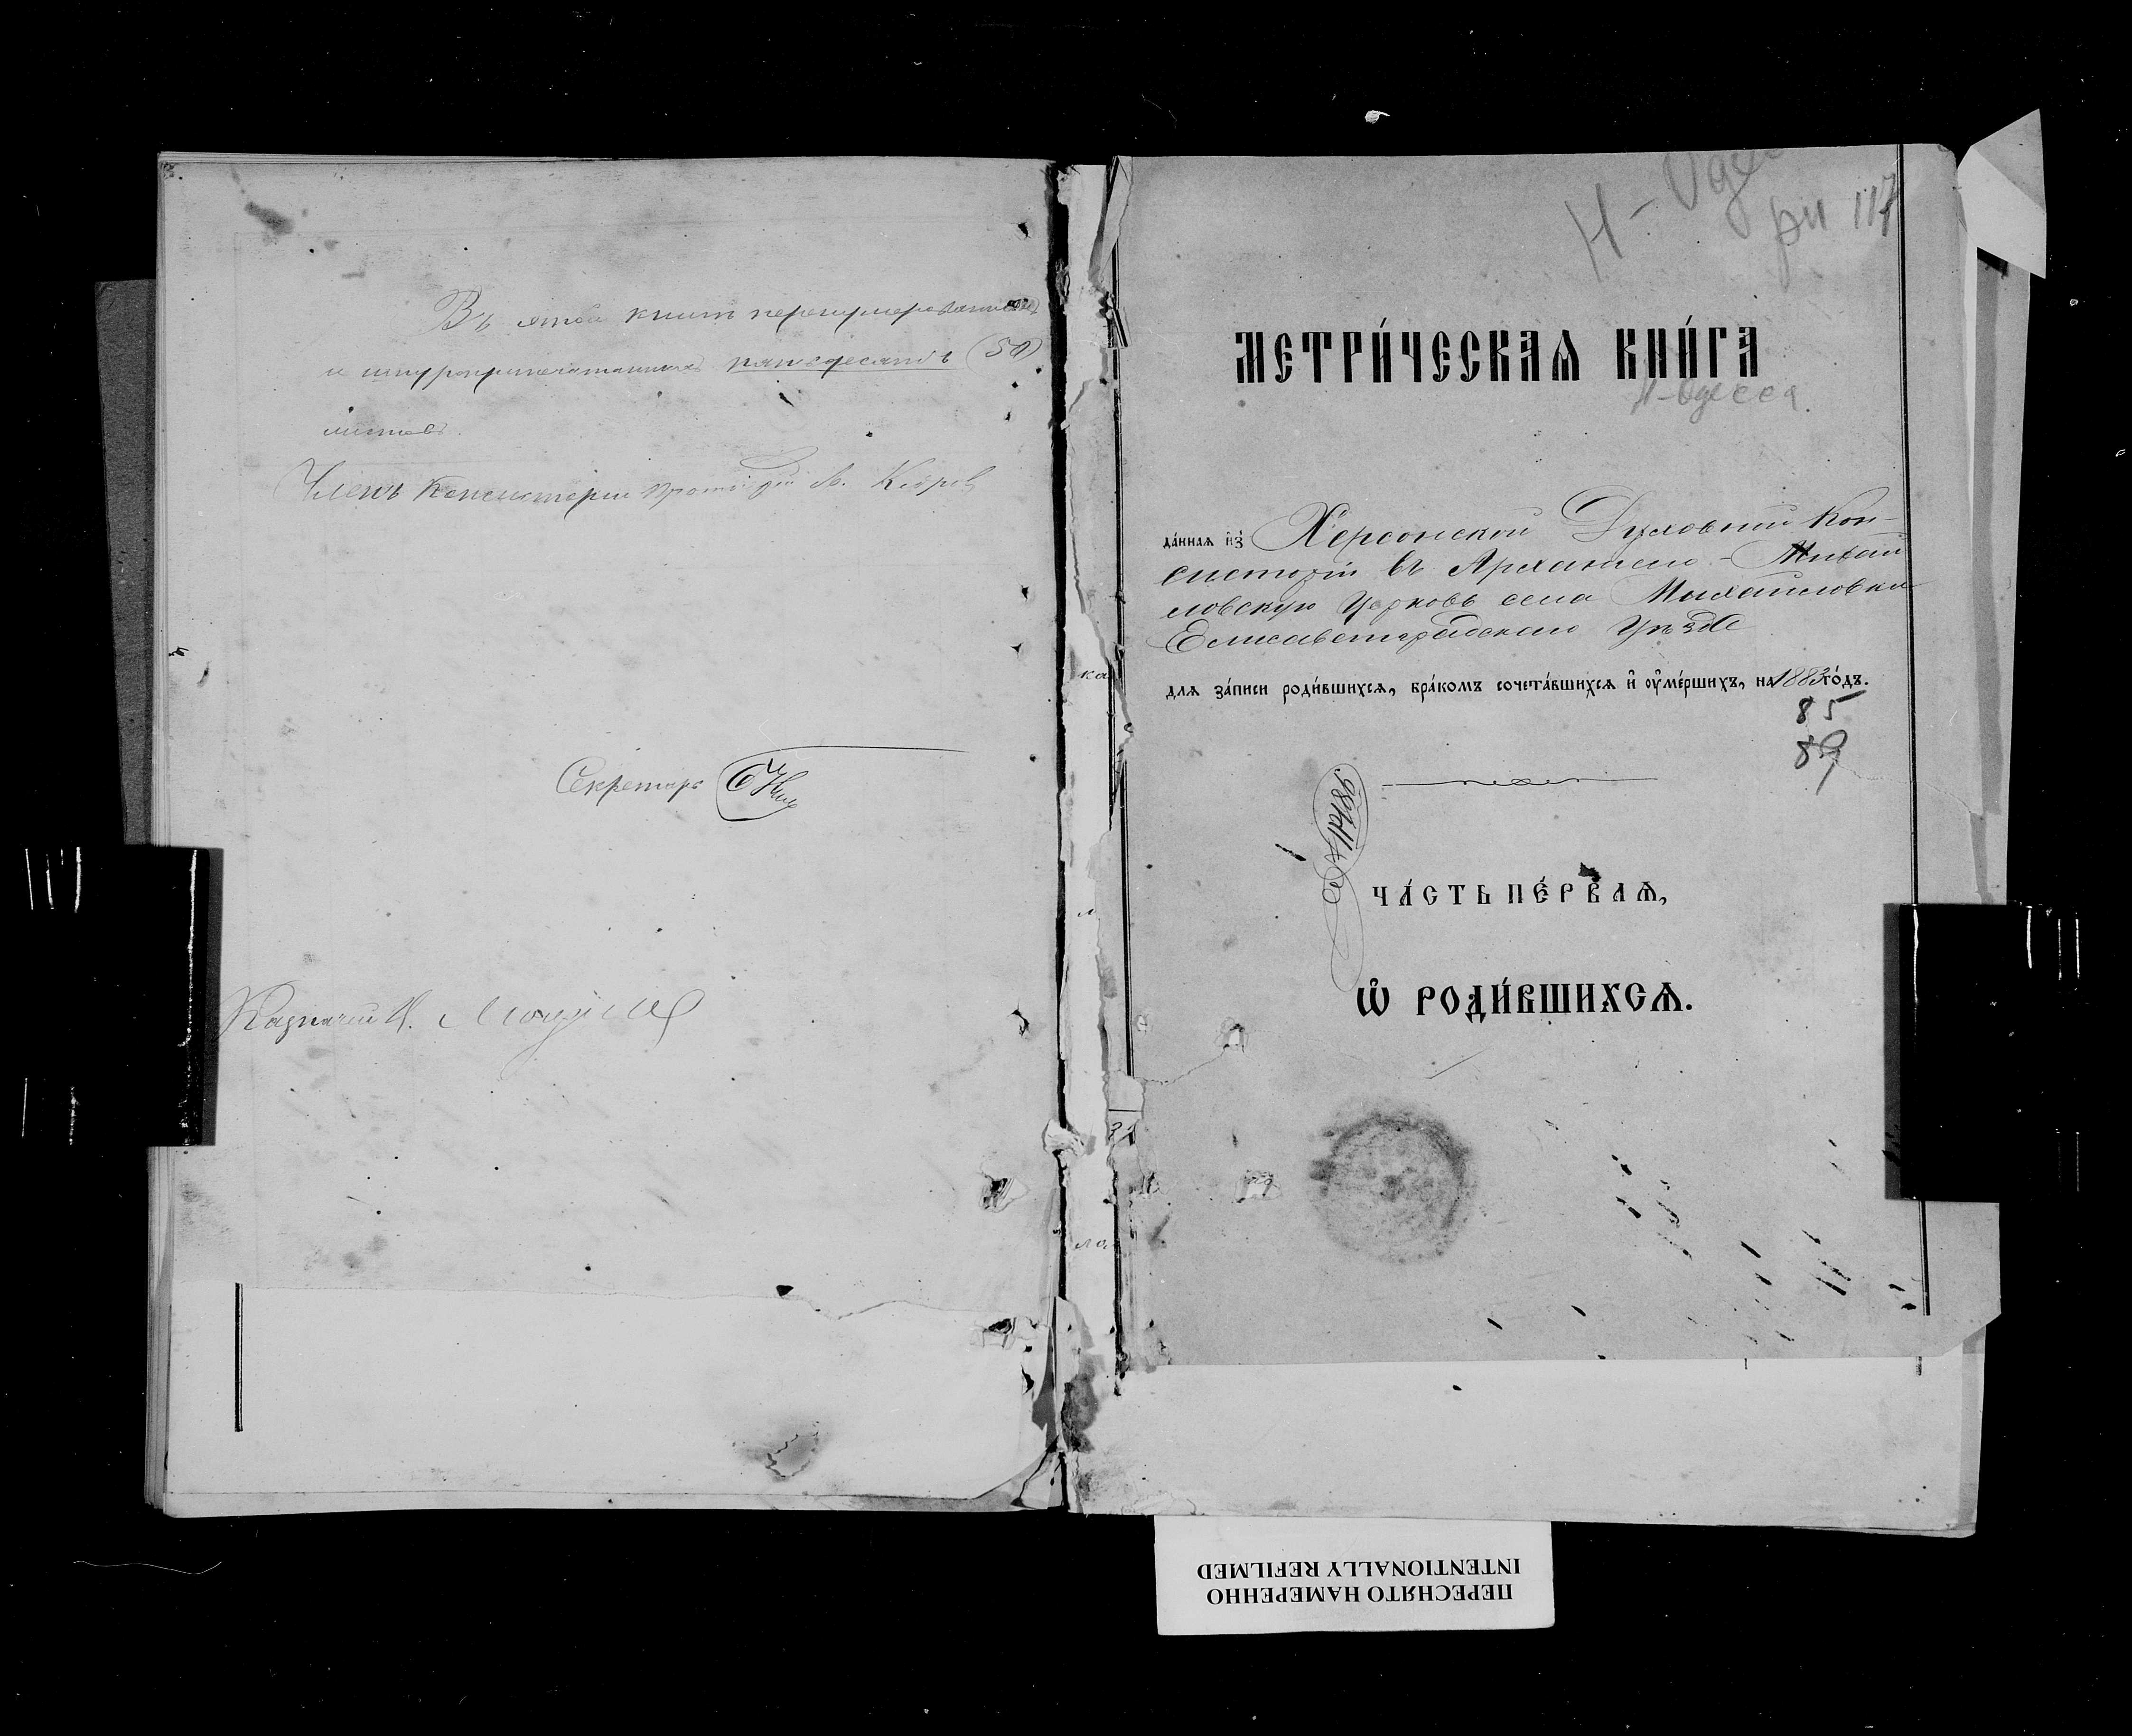 Въ этой книгѣ перенумерованныхъ
и шнуроприпечатанныхъ пятьдесятъ (50)
листовъ.
Членъ Консисторіи Протоіерей
Секретарь
Казначей
Н-Оде
рн 117
МЕТРИ́ЧЕСКАѦ КНИ́ГА
Н-Одесса.
да́ннаѧ и҆з̾ Херсонской Духовной Кон-
систоріи въ Архангело-Михай
ловскую Церковь села Михайловки
Елисаветградскаго Уѣзда
длѧ за́писи роди́вшихсѧ, бра́комъ сочета́вшихсѧ и҆ оу҆ме́ршихъ, на 1883 го́дъ.
85
89
ЧА́СТЬ ПЕ́РВАѦ,
Ѡ҆ РОДИ́ВШИХСѦ.
ПЕРЕСНЯТО НАМЕРЕННО
INTENTIONALLY REFILMED